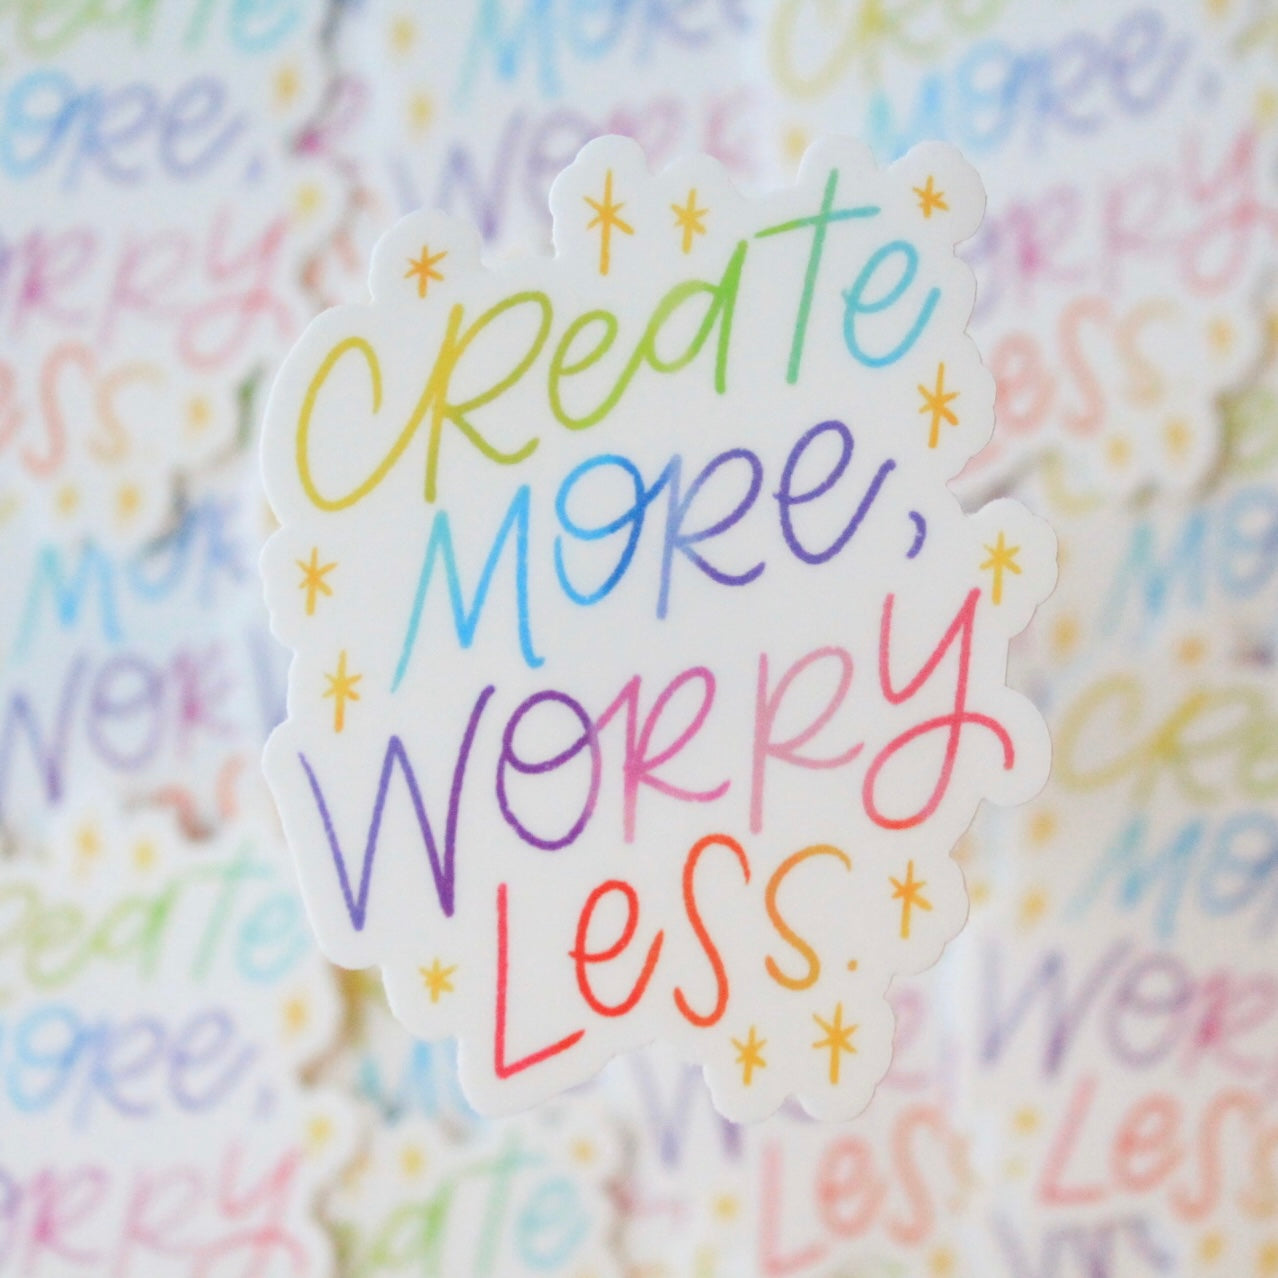 CReate
MORe,
WORRY
Less.